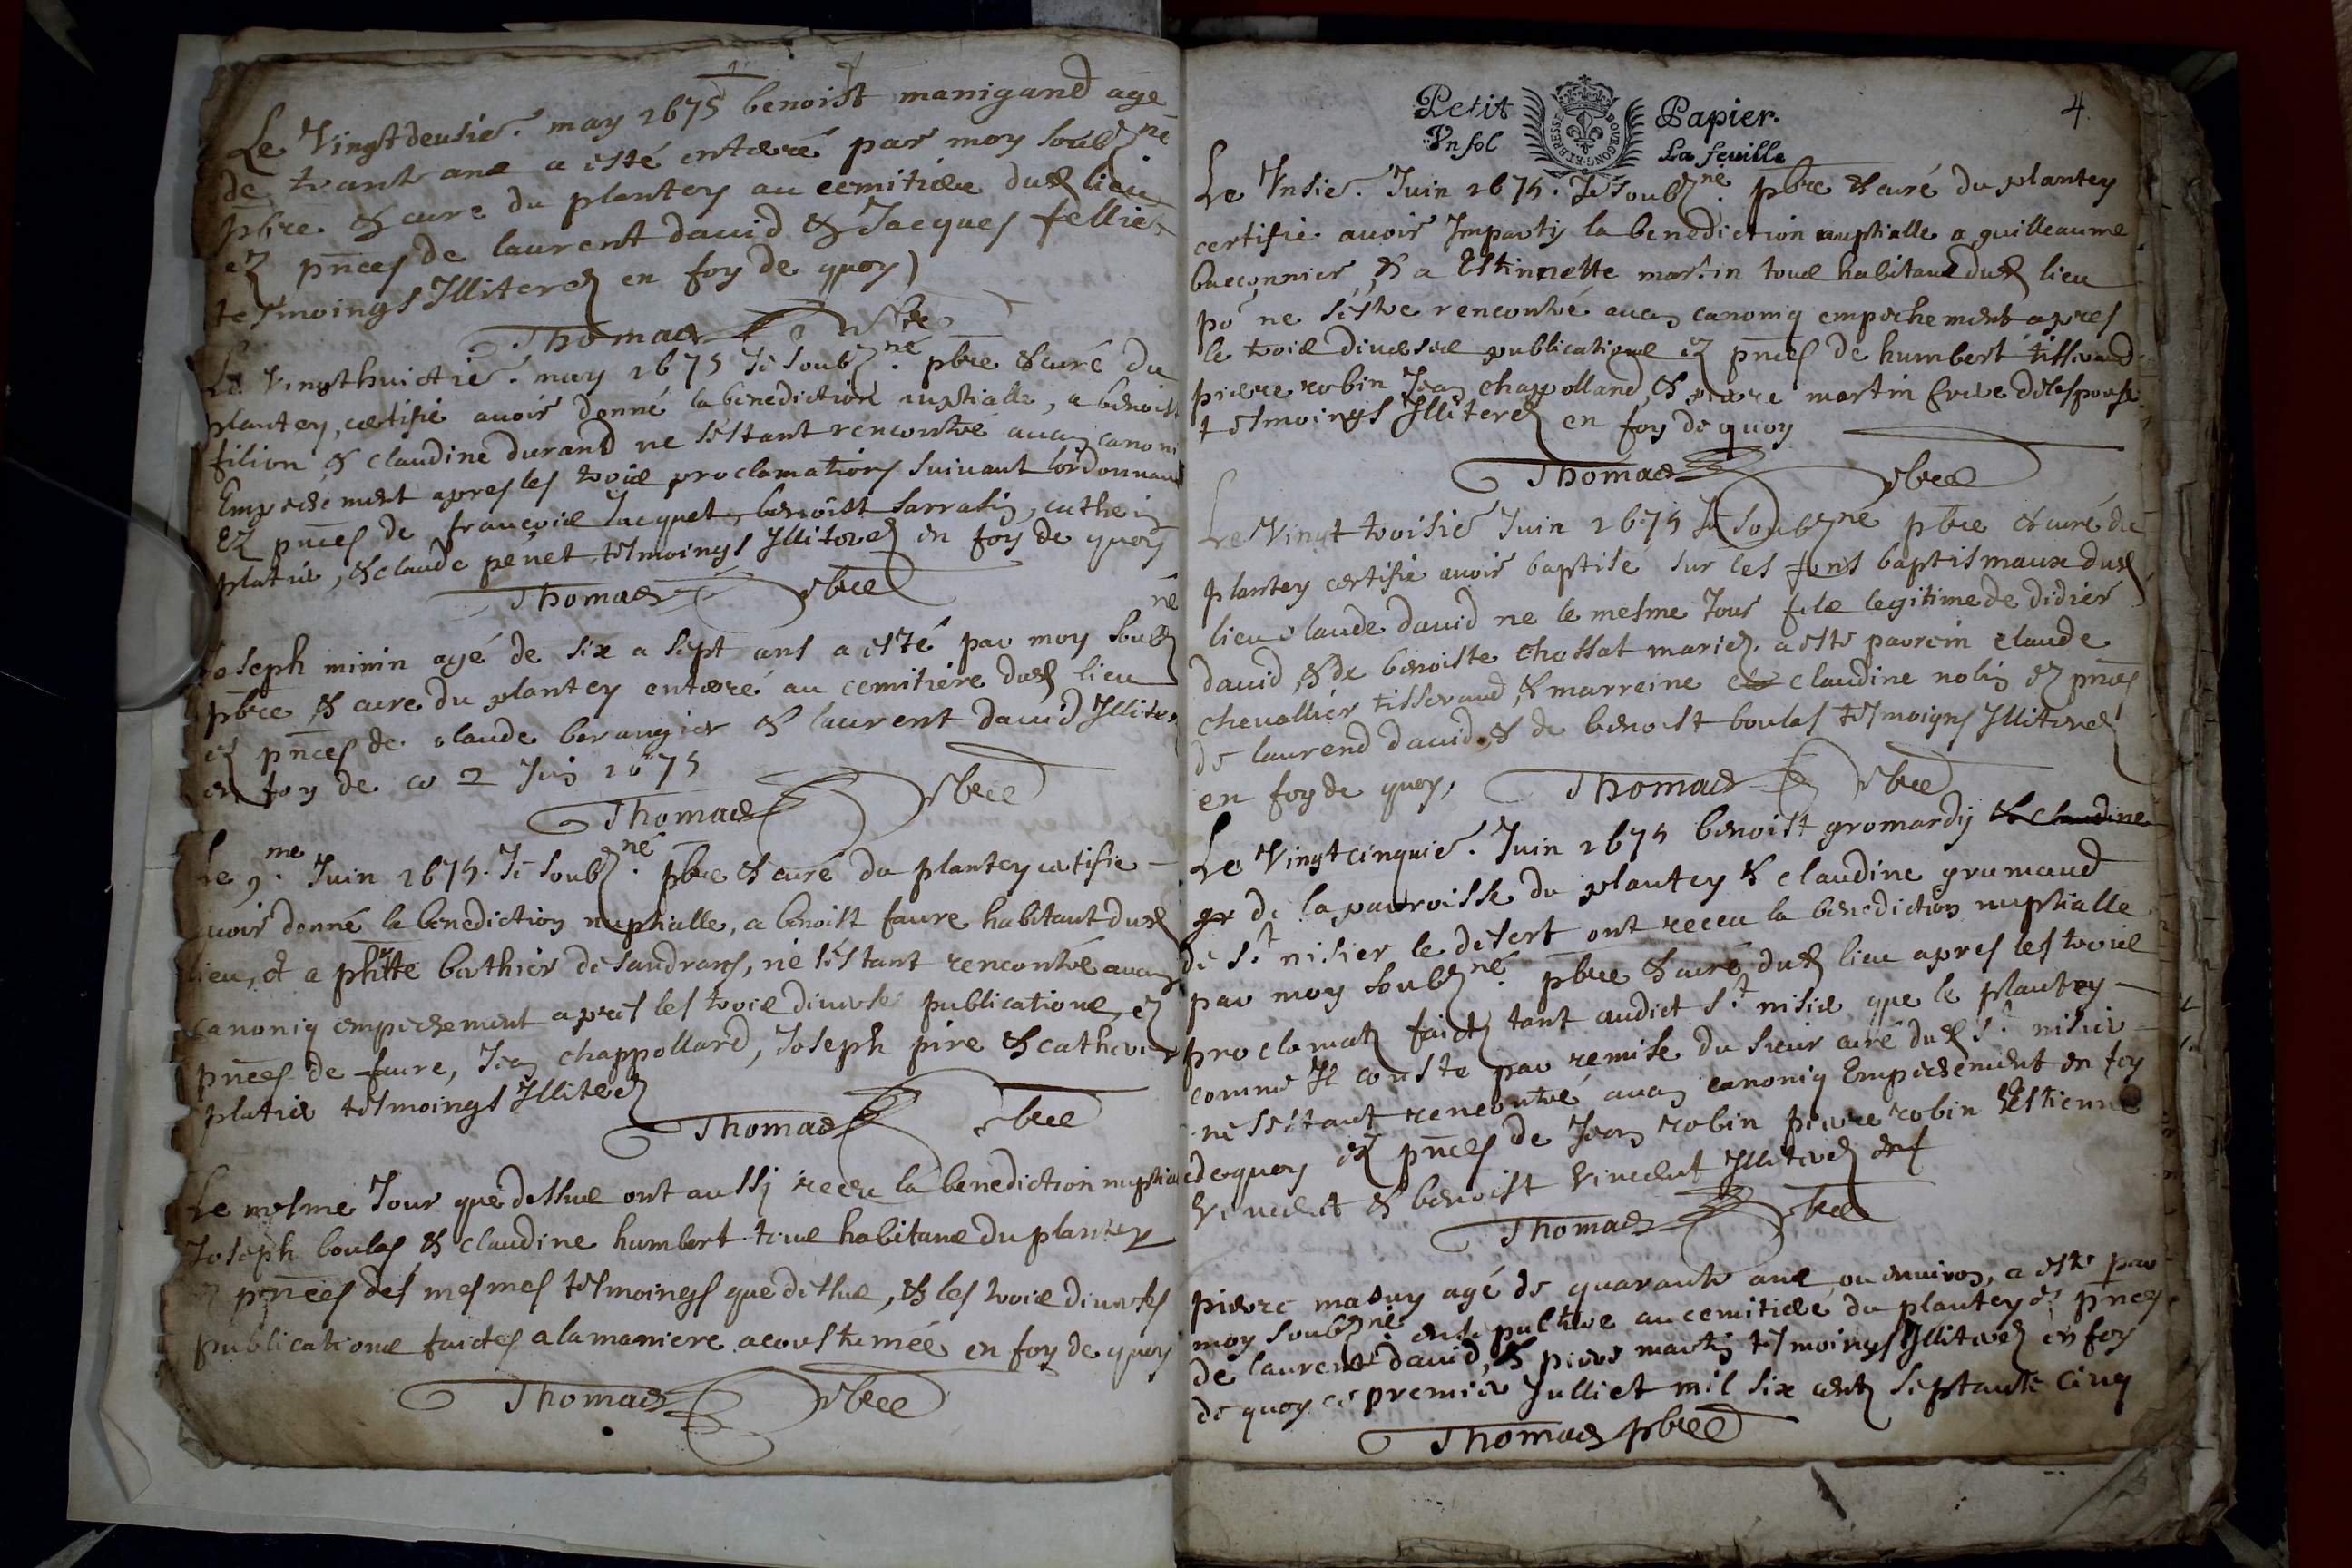 Le Vingtdeusie. may 1675 benoist manigand agé
de trante ans a esté enterré par moy soubz.né
pbre & curé du plantey au cemitiere dud lieu
ez pnces de laurent david & Jacques fellier
tesmoings Illiterez en foy de quoy
Thomas pbre
Le Vingthuictie. may 1675 Je soubz.né pbre & curé du
plantey, certifie avoir donné la benediction nuptialle, a benoist
filion & claudine durand ne sestant rencontré aucun canoni
Empechement apres les trois proclamations suivant lordonnance
Ez pnces de françois Jacquet, benoist sarrasin, catherin
platier, & claude penet tesmoings Illiterez en foy de quoy
Thomas pbre
Joseph minin agé de six a sept ans a esté par moy soubz né
pbre & cure du plantey enterré au cemitiere dud lieu
ez pnces de claude berangier & laurent david Illiter
en foy de ce 2 Juin 1675
Thomas pbre
Le 9.me Juin 1675. Je soubz.né pbre & curé du plantey certifie
avoir donné la benediction nuptialle, a benoist faure habitant dud
lieu, et a phitte berthier de sandrans, ne sestant rencontré aucun
canoniq empechement apres les trois diverses publications, ez
pnces de faure, Jean chappollard, Joseph pire & catherin
platier tesmoings Illiterez
Thomas pbre
Le mesme Jour que dessus ont aussi receu la benediction nuptial
Joseph boulas & claudine humbert tous habitans du plantey
ez pnces des mesmes tesmoings que dessus, & les trois diverses
publications faictes a la maniere acoustumée en foy de quoy
Thomas pbre
4.
Petit Papier.
Un sol La feuille
BOURGONG. ET BRESSE
Le Unsie. Juin 1675. Je soubz.né pbre & curé du plantey
certifie avoir Imparty la benediction nuptialle a guilleaume
baeconnier, & a Estinnette martin tous habitans dud lieu
po ne sestre rencontré aucun canoniq empechement apres
le trois diverses publications ez pnces de humbert tisserand
pierre robin Jean chappolland, & pierre martin frere de lespouse
tesmoings Illiterez en foy de quoy
Thomas pbre
Le Vingt troisie Juin 1675 Je soubz né pbre & curé du
plantey certifie avoir baptisé sur les fons baptismaux dud
lieu claude david ne le mesme Jour fils legitime de didier
david & de benoiste chossat mariez. a esté parrein claude
chevallier tisserand, & marreine cla claudine nolin ez pnces
de laurend david & de benoist boulas tesmoigns Illiterez
en foy de quoy, Thomas pbre
Le Vingtcinquie. Juin 1675 benoist gromardy & claudine
gr de la parroisse du plantey & claudine grumaud
de St nisier le desert ont receu la benediction nuptialle
par moy soubz.né pbre & curé dud lieu apres les trois
proclomatz faictz tant audict St nisier que le plantey
comme Il conste par remise du sieur curé dud St nisier
ne sestant rencontré aucun canoniq Empechement en foy
dequoy ez pnces de Jean robin pierre robin Estienne
Vincent & benoist Vincent Illiterez enf
Thomas pbre
pierre masuy agé de quarante ans ou environ, a esté par
moy soubz.né ensepulture au cemitiere du plantey ez pnces
de laurent david, & pierre martin tesmoings Illiterez en foy
de quoy ce premier Julliet mil six centz septante cinq
Thomas pbre